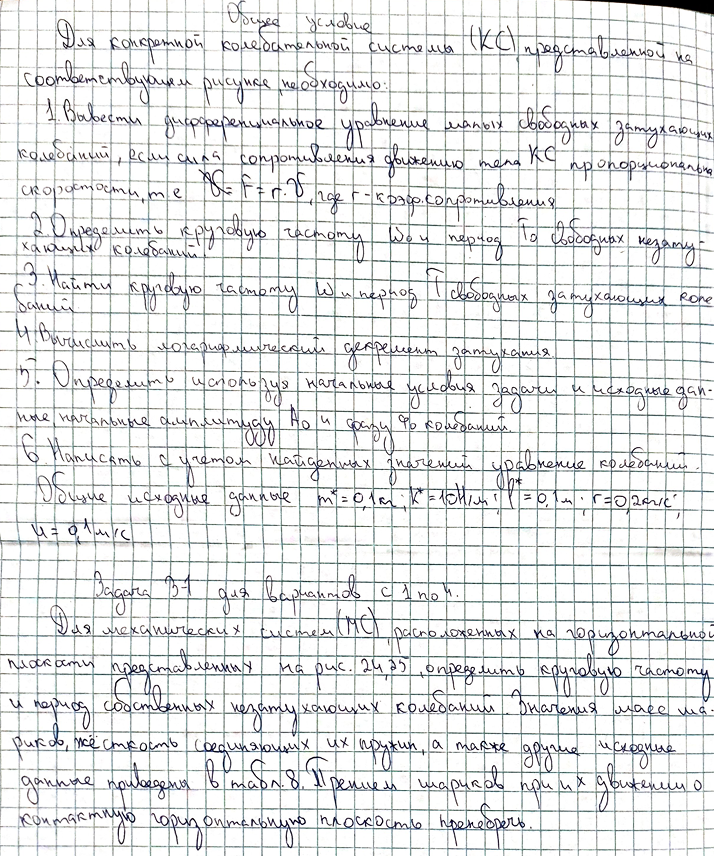 Общее условие
Для конкретной колебательной системы (КС), представленной на
соответствующем рисунке, необходимо:
1. Вывести дифференциальное уравнение малых свободных затухающих
колебаний, если сила сопротивления движению тела КС пропорциональна
скоростости, т.е = F = r·υ, где r - коэф. сопротивления
2. Определить круговую частоту ω₀ и период T₀ свободных незату-
хающих колебаний.
3. Найти круговую частоту ω и период T свободных затухающих коле
баний
4. Вычислить логарифмический декремент затухания.
5. Определить используя начальные условия задачи и исходные дан-
ные, начальные амплитуду A₀ и фазу φ₀ колебаний.
6. Написать с учетом найденных значений уравнение колебаний.
Общие исходные данные m* = 0,1 кг; k* = 10 Н/м; l* = 0,1 м; r = 0,2 кг/с;
u = 0,1 м/с
Задача 3-1 для вариантов с 1 по 4.
Для механических систем (МС), расположенных на горизонтальной
плоскости представленных на рис. 24, 25, определить круговую частоту
и период собственных незатухающих колебаний Значения масс ша-
риков, жёсткость соединяющих их пружин, а также другие исходные
данные приведена в табл. 8. Трением шариков при их движении о
контактную горизонтальную плоскость пренебречь.